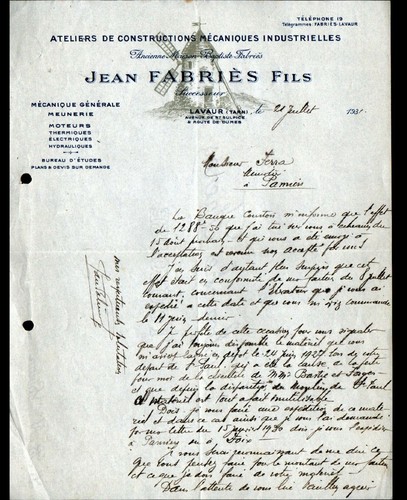 TÉLÉPHONE 19
Télégrammes FABRIÈS-LAVAUR
ATELIERS DE CONSTRUCTIONS MÉCANIQUES INDUSTRIELLES
Ancienne Maison Baptiste Fabriès
JEAN FABRIÈS FILS
Successeur
MÉCANIQUE GÉNÉRALE
MEUNERIE
MOTEURS
THERMIQUES
ÉLECTRIQUES
HYDRAULIQUES
BUREAU D'ÉTUDES
PLANS & DEVIS SUR DEMANDE
LAVAUR (TARN) le 21 Juillet 193
AVENUE DE ST SULPICE
& ROUTE DE
Monsieur
à Pamiers
La Banque Courtois m'informe que l'effet
de 1288 que j'ai tiré sur vous à échéance du
15 août prochain et qui vous a été envoyé à
l'acceptation est revenu non accepté
J'ai lieu d'être d'autant surpris que cet
effet était en conformité de ma facture du 8 juillet
courant, concernant que je vous ai
expédié à cette date et que vous m'avez commandé
le 11 juin dernier
Je profite de cette occasion pour vous signaler
que j'ai toujours disponible le matériel que vous
m'avez laissé en dépôt le 24 juin 1927 lors de votre
départ de St Paul, qui a été la cause de la perte
pour moi de la clientèle de MM
et que depuis la disparition du moulin de St Paul
ce matériel est tout à fait inutilisable
Dois-je vous faire une expédition de ce maté-
riel et dans ce cas ainsi que je vous l'ai demandé
par ma lettre du 1930 dois-je vous l'expédier
à Pamiers ou à Foix
Je vous serais reconnaissant de me dire ce
que vous pensez faire pour le montant de ma facture
et ce que je dois faire de votre matériel
Dans l'attente de vous lire veuillez agréer
mes meilleures salutations